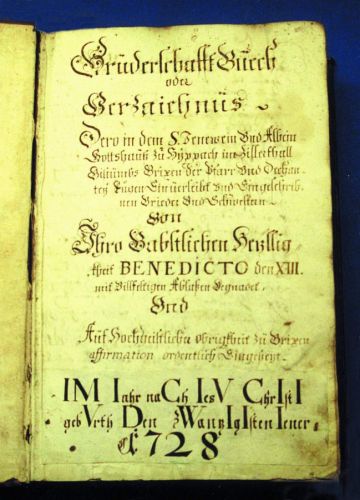 Brüderschafft Buech
oder
Verzaichnus
Dero in dem S. Ingenuin Und Albein
Gottshauß zu Hyppach im Zillerthall
Bistumbs Brixen der Pfarr Und
Einverleibt Und Eingeschrib-
nen Brieder Und Schwestern
von
Ihro Päbstlichen Heyllig-
kheit BENEDICTO den XIII.
mit Villfeltigen Ablaßen Begnadet
Und
Auf Hochgeistliche obrigkheit zu Brixen
affirmation ordentlich Eingesezt.
IM Iahr naCh IesV ChrIstI
gebVrth Den zWanzIgIsten Iener
728